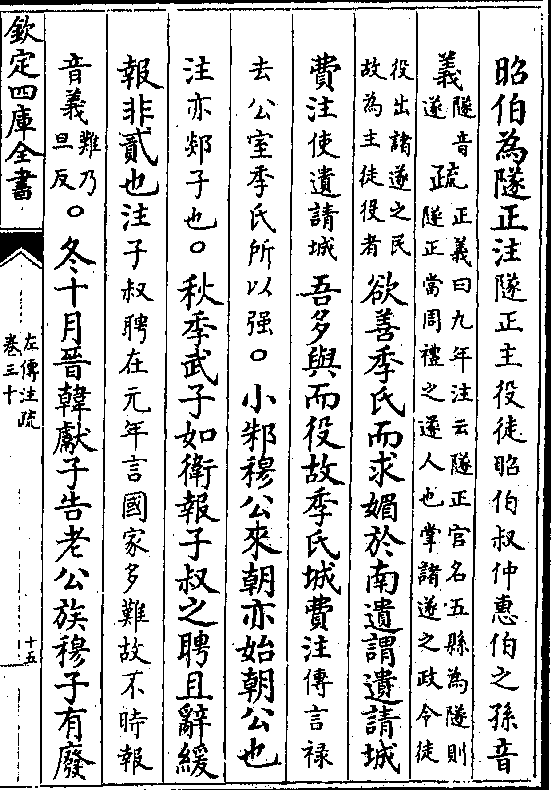 昭伯為隧正注隧正主役徒昭伯叔仲惠伯之孫音
義隧音遂疏正義曰九年注云隧正官名五縣為隧則隧正當周禮之遂人也掌諸遂之政令徒
役出諸遂之民故為主徒役者欲善季氏而求媚於南遺謂遺請城
費注使遺請城吾多與而役故季氏城費注傳言祿
去公室季氏所以强○小邾穆公來朝亦始朝公也
注亦郯子也○秋季武子如衛報子叔之聘且辭緩
報非貳也注子叔聘在元年言國家多難故不時報
音義難乃旦反○冬十月晉韓獻子告老公族穆子有廢
欽定四庫全書
左傳注疏
卷三十
十五